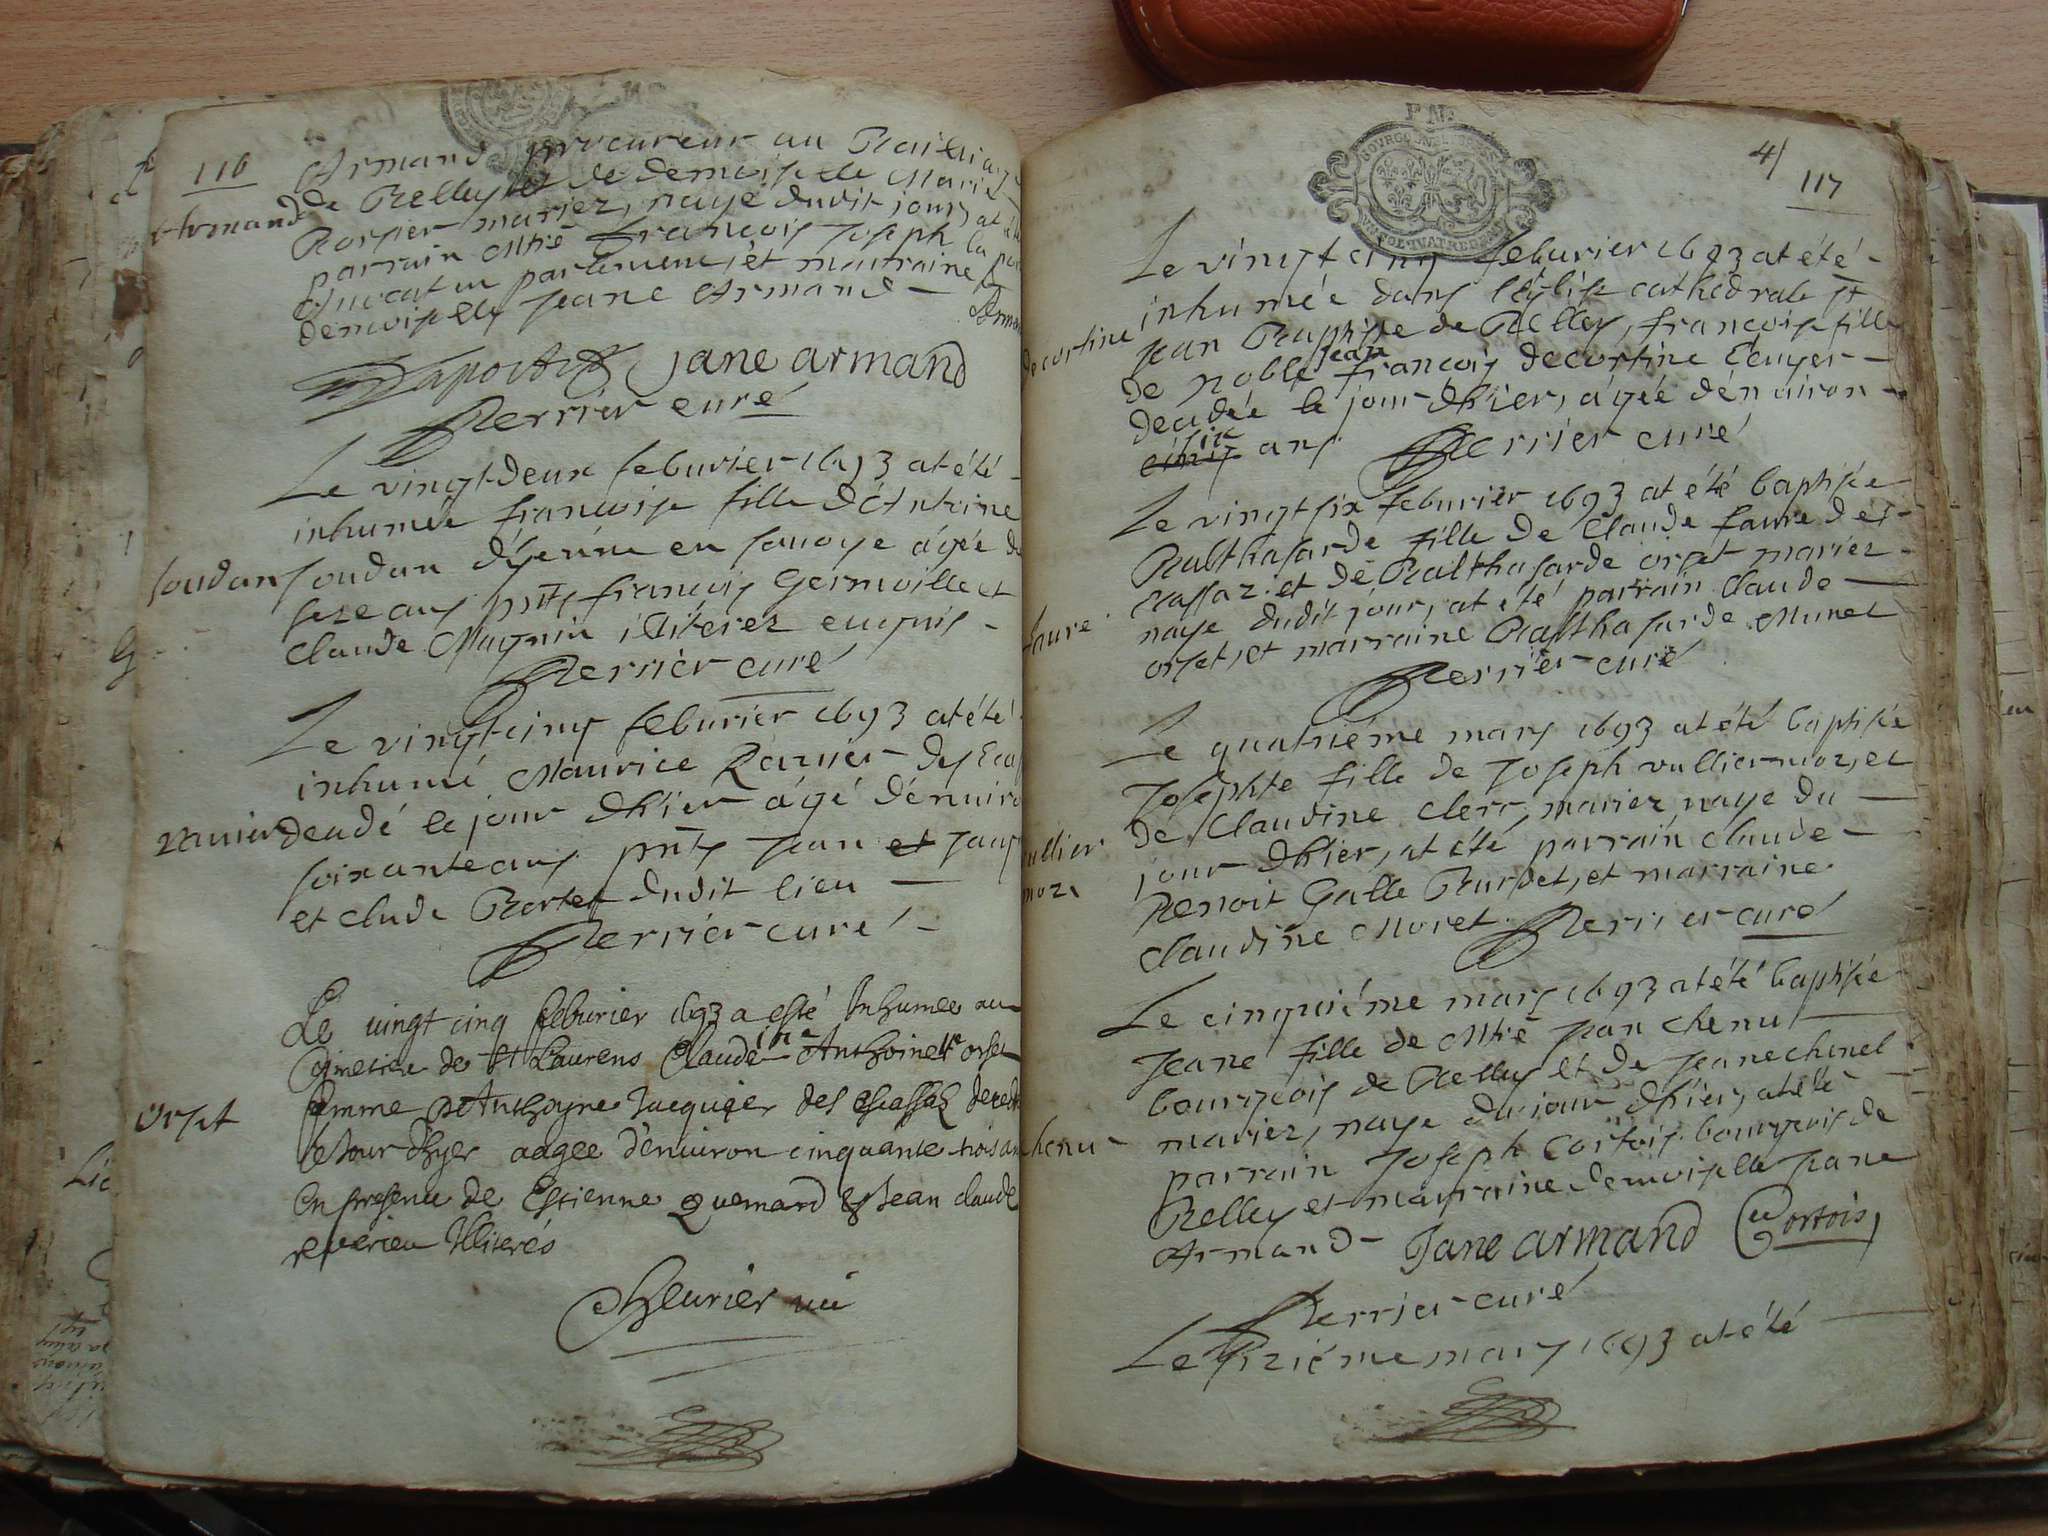 116
Armand procureur au Bailliage
de Belley et de demoiselle Marie
Armand
mariez, naye dudit jour, at été
parrain Mtre françois Joseph la
Avocat en parlement et marraine
demoiselle Jeane Armand
jane armand
Perrier curé
Le vingt deux feburier 1693 at été
inhumée françoise fille d'Antoine
soudan
soudan d'yenne en sauoye agée de
seze ans pnts françois Germoille et
Claude Magnin illiterez enquis
Perrier curé
Le vingtcinq feburier 1693 at été
inhumé Maurice Rauier des
decedé le jour d'hier agé d'enuiron
soixante ans pnts Jean et
et clude dudit lieu
Perrier curé
Le uingt cinq feburier 1693 a esté Inhumee au
Cimetiere de St Laurens Claudine Anthoinette orset
Orset
femme D'Anthoyne Jacquier des
le Jour d'hyer aagee d'enuiron cinquante trois ans
En presence de Estienne quemard & Jean claude
reverieu Illiterés
4
117
Le vingt cinq feburier 1693 at été
inhumée dans l'église cathedrale st
decortine
Jean Baptiste de Belley, françoise fille
de noble jean françois decortine Ecuyer
decedée le jour d'hier, agée d'enuiron
cinq six ans
Perrier curé
Le vingt six feburier 1693 at été baptisée
Balthasarde fille de Claude faure des
et de Balthasarde orset mariez
faure
naye dudit jour, at été parrain Claude
orset, et marraine Balthasarde Munet
Perrier curé
Le quatriéme mars 1693 at été baptisée
Josephte fille de Joseph vulliermoz, et
de Claudine Clerc, mariez naye du
vullier
moz
jour d'hier, at été parrain Claude
Benoit Galle et marraine
Claudine Moret
Perrier curé
Le cinquiéme mars 1693 at été baptisée
Jeane fille de Mtre Jean Chenu
bourgeois de Belley et de Jeane chenel
chenu
mariez, naye du iour d'hier, at été
parrain Joseph Cortois bourgeois de
Belley et marraine demoiselle Jeane
Armand
Jane armand Cortois
Perrier curé
Le sixiéme mars 1693 at été